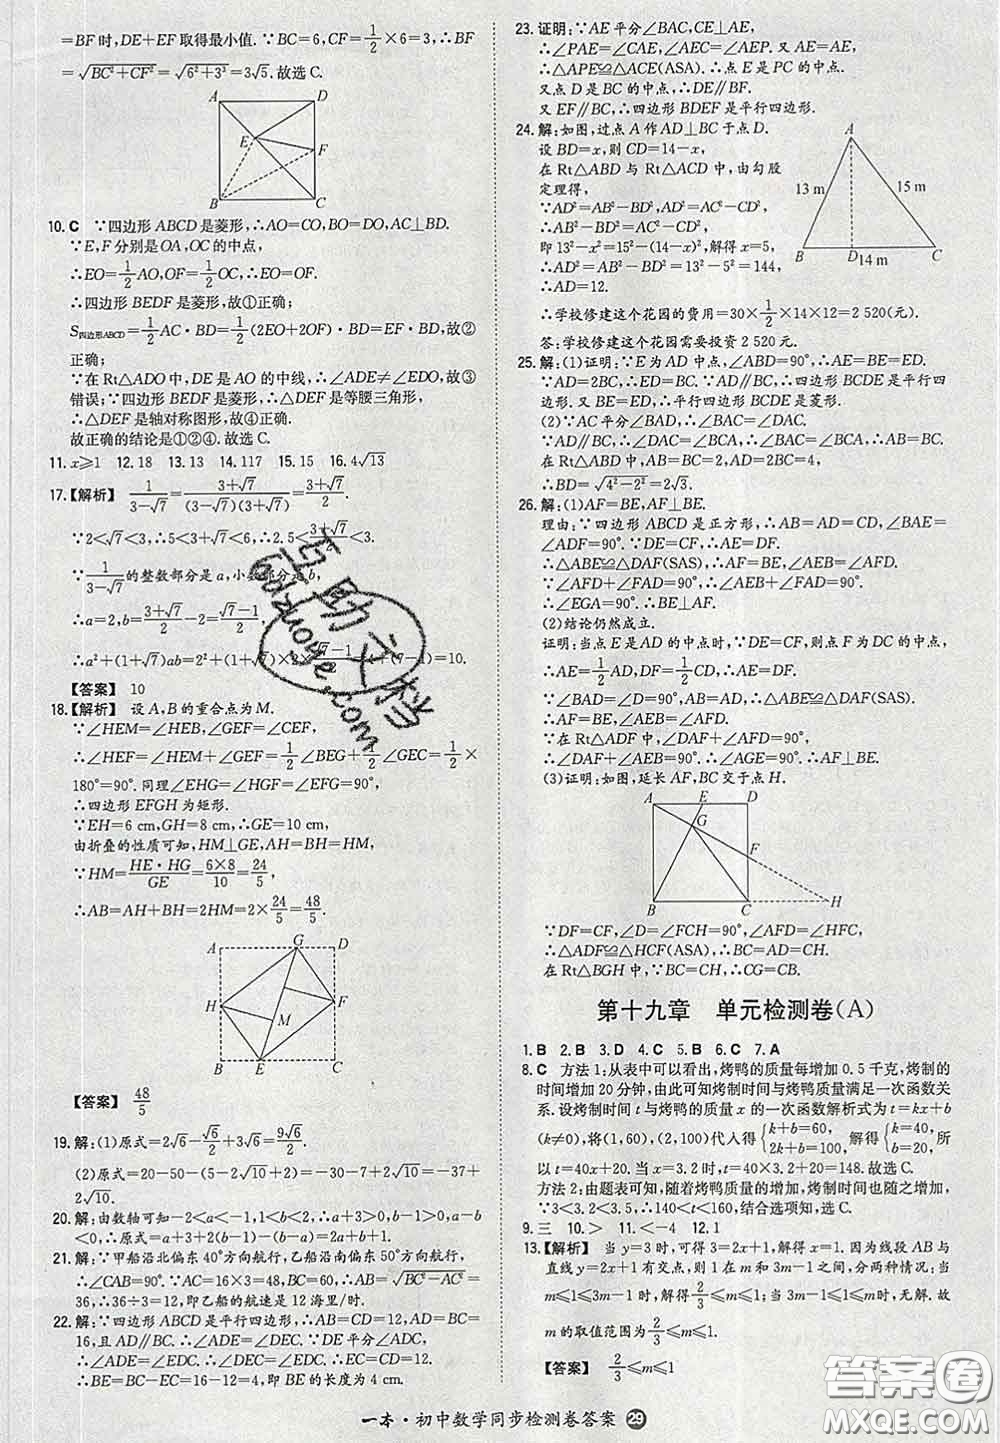 =BF时,DE+EF取得最小值.∵BC=6,CF=1/2×6=3,∴BF
=√(BC²+CF²)=√(6²+3³)=3√5.故选C.
A
D
E
F
B
C
10. C ∵四边形ABCD是菱形,∴AO=CO,BO=DO,AC⊥BD.
∵E,F分别是OA,OC的中点,
∴EO=1/2AO,OF=1/2OC,∴EO=FO.
∴四边形BEDF是菱形,故①正确;
S四边形ABCD=1/2AC·BD=1/2(2EO+2OF)·BD=EF·BD,故②
正确;
∵在Rt△ADO中,DE是AO的中线,∴∠ADE≠∠EDO,故③
错误;∵四边形BEDF是菱形,∴△DEF是等腰三角形,
∴△DEF是轴对称图形,故④正确.
故正确的结论是①②④.故选C.
11. x≥1 12. 18 13. 13 14. 117 15. 15 16. 4√13
17.【解析】 1/(3-√7)=(3+√7)/((3-√7)(3+√7))=(3+√7)/2.
∵2<√7<3,∴5<3+√7<6,∴2.5<(3+√7)/2<3.
∵1/(3-√7)的整数部分是a,小数部分是b,
∴a=2,b=(3+√7)/2-2=(√7-1)/2,
∴a²+(1+√7)ab=2²+(1+√7)×2×(√7-1)/2=4+(7-1)=10.
【答案】 10
18.【解析】 设A,B的重合点为M.
∵∠HEM=∠HEB,∠GEF=∠CEF,
∴∠HEF=∠HEM+∠GEF=1/2∠BEG+1/2∠GEC=1/2×
180°=90°.同理∠EHG=∠HGF=∠EFG=90°,
∴四边形EFGH为矩形.
∵EH=6 cm,GH=8 cm,∴GE=10 cm,
由折叠的性质可知,HM⊥GE,AH=BH=HM,
∵HM=HE·HG/GE=6×8/10=24/5,
∴AB=AH+BH=2HM=2×24/5=48/5.
A
G
D
H
F
M
B
E
C
【答案】 48/5
19.解:(1)原式=2√6-√6/2+3√6=9√6/2.
(2)原式=20-50-(5-2√10+2)=-30-7+2√10=-37+
2√10.
20.解:由数轴可知-2<a<-1,1<b<2,∴a+3>0,b-1>0,a-b
<0,∴原式=a+3+2(b-1)-(b-a)=2a+b+1.
21.解:∵甲船沿北偏东40°方向航行,乙船沿南偏东50°方向航行,
∴∠CAB=90°.∵AC=16×3=48,BC=60,∴AB=√(BC²-AC²)=
36,∴36÷3=12,即乙船的航速是12海里/时.
22.解:∵四边形ABCD是平行四边形,∴AB=CD=12,AD=BC=
16,且AD∥BC.∴∠ADE=∠DEC.∵DE平分∠ADC,
∴∠ADE=∠EDC.∴∠DEC=∠EDC.∴CE=CD=12.
∴BE=BC-EC=16-12=4,即BE的长度为4 cm.
23.证明:∵AE平分∠BAC,CE⊥AE,
∴∠PAE=∠CAE,∠AEC=∠AEP.又AE=AE,
∴△APE≌△ACE(ASA).∴点E是PC的中点.
又点D是BC的中点,∴DE∥BF.
又EF∥BC,∴四边形BDEF是平行四边形.
24.解:如图,过点A作AD⊥BC于点D.
设BD=x,则CD=14-x,
在Rt△ABD与Rt△ACD中,由勾股
定理得,
∵AD²=AB²-BD²,AD²=AC²-CD²,
∴AB²-BD²=AC²-CD²,
即13²-x²=15²-(14-x)²,解得x=5,
此时AD²=AB²-BD²=13²-5²=144,
∴AD=12.
A
13 m
15 m
B
D
14 m
C
∴学校修建这个花园的费用=30×1/2×14×12=2 520(元).
答:学校修建这个花园需要投资2 520元.
25.解:(1)证明:∵E为AD中点,∠ABD=90°,∴AE=BE=ED.
∵AD=2BC,∴ED=BC.∵AD∥BC,∴四边形BCDE是平行四
边形.又BE=ED,∴平行四边形BCDE是菱形.
(2)∵AC平分∠BAD,∴∠BAC=∠DAC.
∵AD∥BC,∴∠DAC=∠BCA,∴∠BAC=∠BCA,∴AB=BC.
在Rt△ABD中,∵AB=BC=2,AD=2BC=4,
∴BD=√(4²-2²)=2√3.
26.解:(1)AF=BE,AF⊥BE.
理由:∵四边形ABCD是正方形,∴AB=AD=CD,∠BAE=
∠ADF=90°.∵DE=CF,∴AE=DF.
∴△ABE≌△DAF(SAS),∴AF=BE,∠AEB=∠AFD.
∵在Rt△ADF中,∠FAD+∠AFD=90°,∴∠AEB+∠FAD=90°,
∴∠EGA=90°.∴BE⊥AF.
(2)结论仍然成立.
证明:当点E是AD的中点时,∵DE=CF,则点F为DC的中点,
∴AE=1/2AD,DF=1/2CD,∴AE=DF.
∵∠BAD=∠D=90°,AB=AD,∴△ABE≌△DAF(SAS),
∴AF=BE,∠AEB=∠AFD.
∵在Rt△ADF中,∠DAF+∠AFD=90°,
∴∠DAF+∠AEB=90°,∴AF⊥BE.
(3)证明:如图,延长AF,BC交于点H.
A
E
D
G
F
B
C
H
∵DF=CF,∠D=∠FCH=90°,∠AFD=∠HFC,
∴△ADF≌△HCF(ASA),∴BC=AD=CH.
在Rt△BGH中,∵BC=CH,∴CG=CB.
第十九章 单元检测卷(A)
1. B 2. B 3. D 4. C 5. B 6. C 7. A
8. C 方法1:从表中可以看出,烤鸭的质量每增加0.5千克,烤制的
时间增加20分钟,由此可知烤制时间与烤鸭质量满足一次函数关
系.设烤制时间t与烤鸭的质量x的一次函数解析式为t=kx+b
(k≠0),将(1,60),(2,100)代入得{k+b=60, 2k+b=100, 解得{k=40, b=20, 所
以t=40x+20.当x=3.2时,t=40×3.2+20=148.故选C.
方法2:由题表可知,随着烤鸭的质量增加,烤制时间也随之增加,
∵3<3.2<3.5,∴140<t<160,结合选项知,选C.
9. 三 10. > 11. <-4 12. 1
13.【解析】 当y=3时,可得3=2x+1,解得x=1.因为线段AB与
直线y=2x+1有交点,且m与3m-1大小不定,分两种情况:当
m≤1≤3m-1时,解得2/3≤m≤1;当3m-1≤1≤m时,无解.故
m的取值范围为2/3≤m≤1.
【答案】 2/3≤m≤1
一本·初中数学同步检测卷答案 29
互助文档
6dzuoye.com
答案圈
MXQE.COM